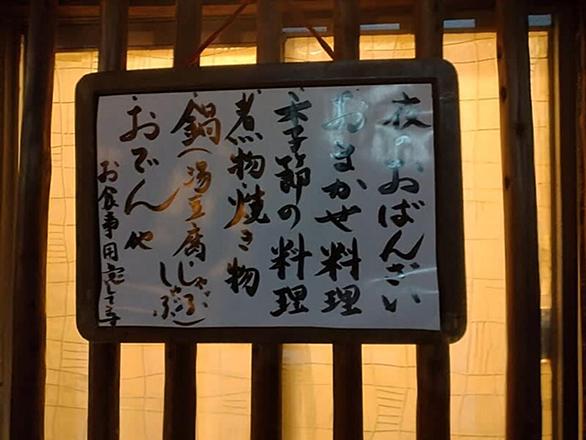 夜のおばんざい
おまかせ料理
季節の料理
煮物・焼き物
鍋(湯豆腐・しゃぶしゃぶ)
おでんや
お食事用意してます